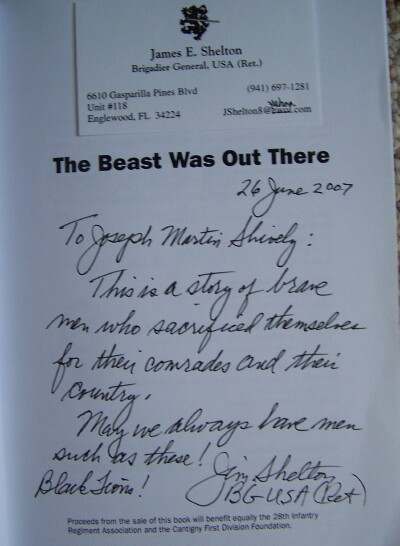 James E. Shelton
Brigadier General, USA (Ret.)
6610 Gasparilla Pines Blvd
(941) 697-1281
Unit #118
yahoo
Englewood, FL 34224
JShelton8@.com
The Beast Was Out There
26 June 2007
To Joseph Martin Shively:
This is a story of brave
men who sacrificed themselves
for their comrades and their
Country.
May we always have men
such as these!
Jim Shelton
Black Lions!
BG USA (Ret)
Proceeds from the sale of this book will benefit equally the 28th Infantry
Regiment Association and the Cantigny First Division Foundation.